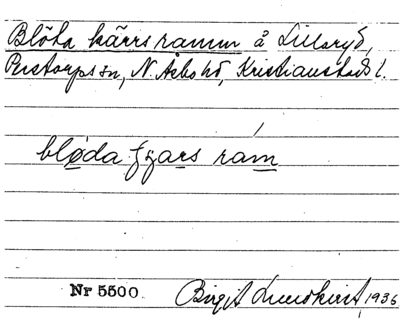 Blöta kärrs ramm å Lillaryd,
Perstorps sn, N. Åsbo hd, Kristianstads l.
bløda ʃɟars rám
Nr 5500 Birgit Lundkvist 1936